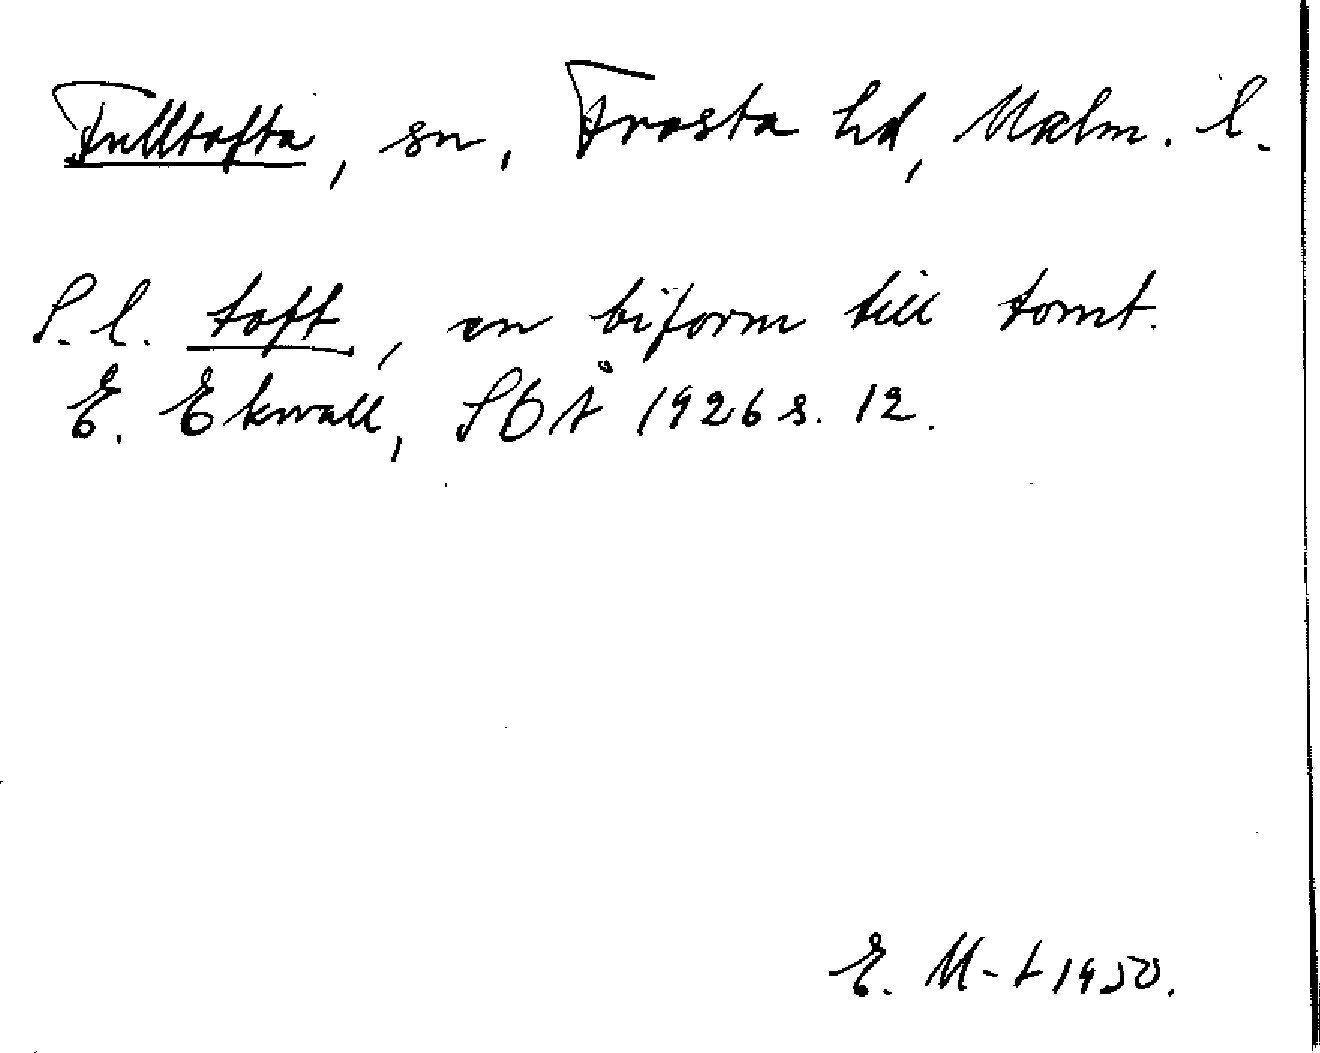 Fulltofta, sn, Frosta hd, Malm. l.
S.l. toft, en biform till tomt.
E. Ekwall, SOÅ 1926 s. 12.
E. M-t 1950.